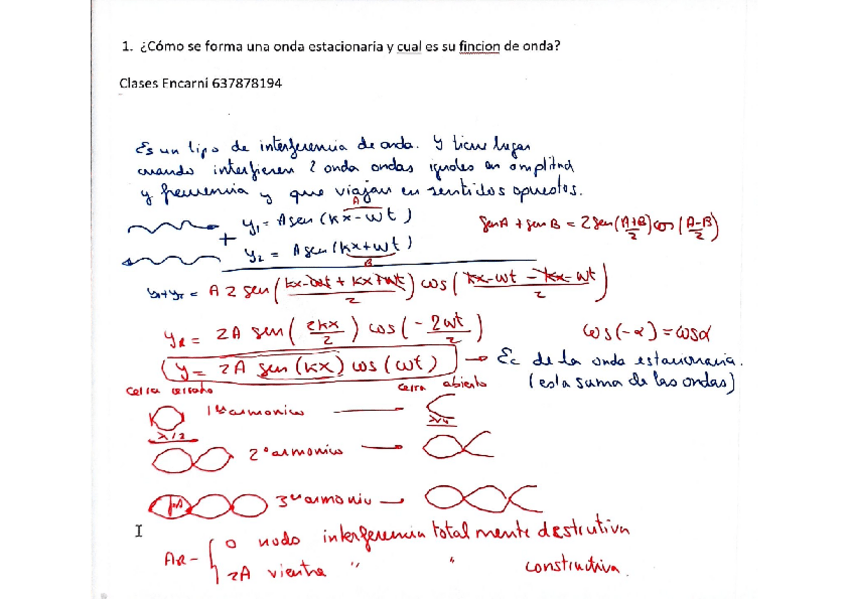 1. ¿Cómo se forma una onda estacionaria y cual es su fincion de onda?
Clases Encarni 637878194
Es un tipo de interferencia de onda. Y tiene lugar
cuando interfieren 2 onda ondas iguales en amplitud
y frecuencia y que viajan en sentidos opuestos.
A
y₁ = A sen (kx - wt)
senA + senB = 2 sen(A+B/2) cos(A-B/2)
+
y₂ = A sen (kx + wt)
B
= A 2 sen (kx - wt + kx + wt / 2) cos (kx - wt - kx - wt / 2)
y_R = 2A sen (2kx/2) cos (-2wt/2)
cos(-α) = cosα
y = 2A sen (kx) cos (wt) → Ec de la onda estacionaria.
(esta suma de las ondas)
cerra abierto
1er armonico
λ/2
λ/4
2º armonico
3er armonico
A_R = { 0 nodo interferencia totalmente destrutiva
2A vientre " " constructiva.